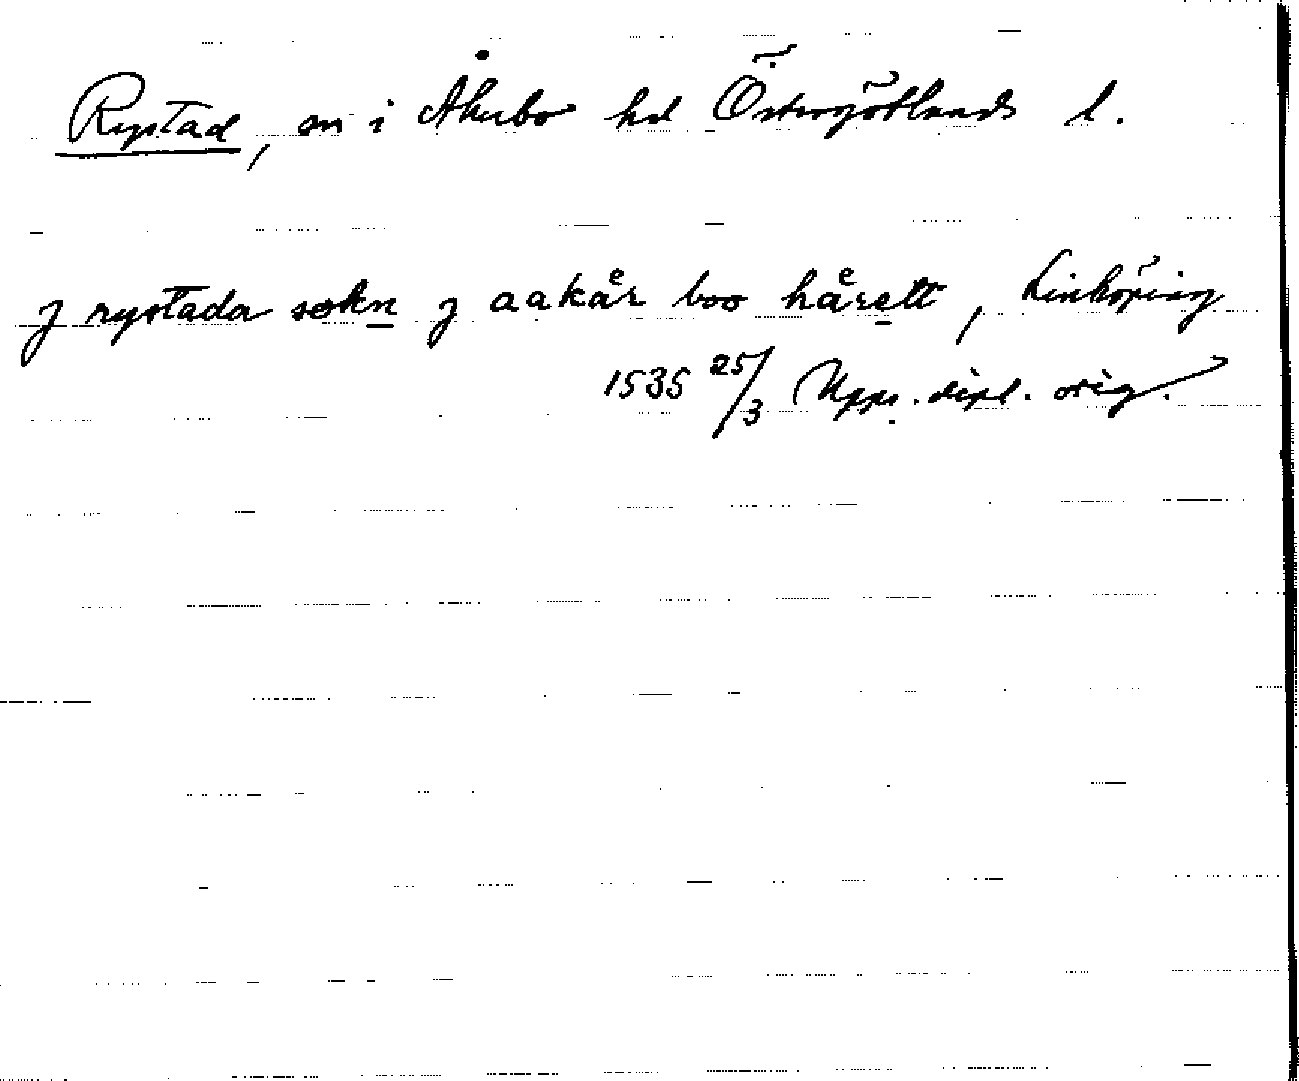 Rystad, sn i Åkerbo hd Östergötlands l.
J rystada sokn J aakaͤr boo haͤrett, Linköping
1535 25/3 Upps. dipl. orig.